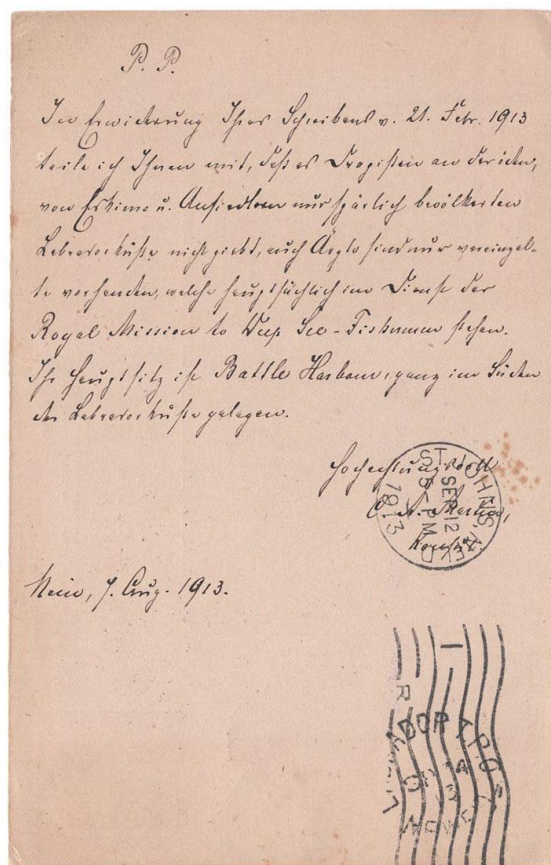 P. P.
In Erwiderung Ihres Schreibens v. 21. Febr. 1913
teile ich Ihnen mit, daß es Drogisten an der öden,
von Eskimo u. Ansiedlern nur spärlich bevölkerten
Labradorküste nicht giebt, auch Ärzte sind nur vereinzel-
te vorhanden, welche hauptsächlich im Dienst der
Royal Mission to Deep See-Fishermen stehen.
Ihr Hauptsitz ist Battle Harbour, ganz im Süden
der Labradorküste gelegen.
Hochachtungsvoll
Martin,
ST. JOHN'S, NEWF'D
SEP 12
5-PM
1913
Nain, 7. Aug. 1913.
LABRADOR T.P.O.